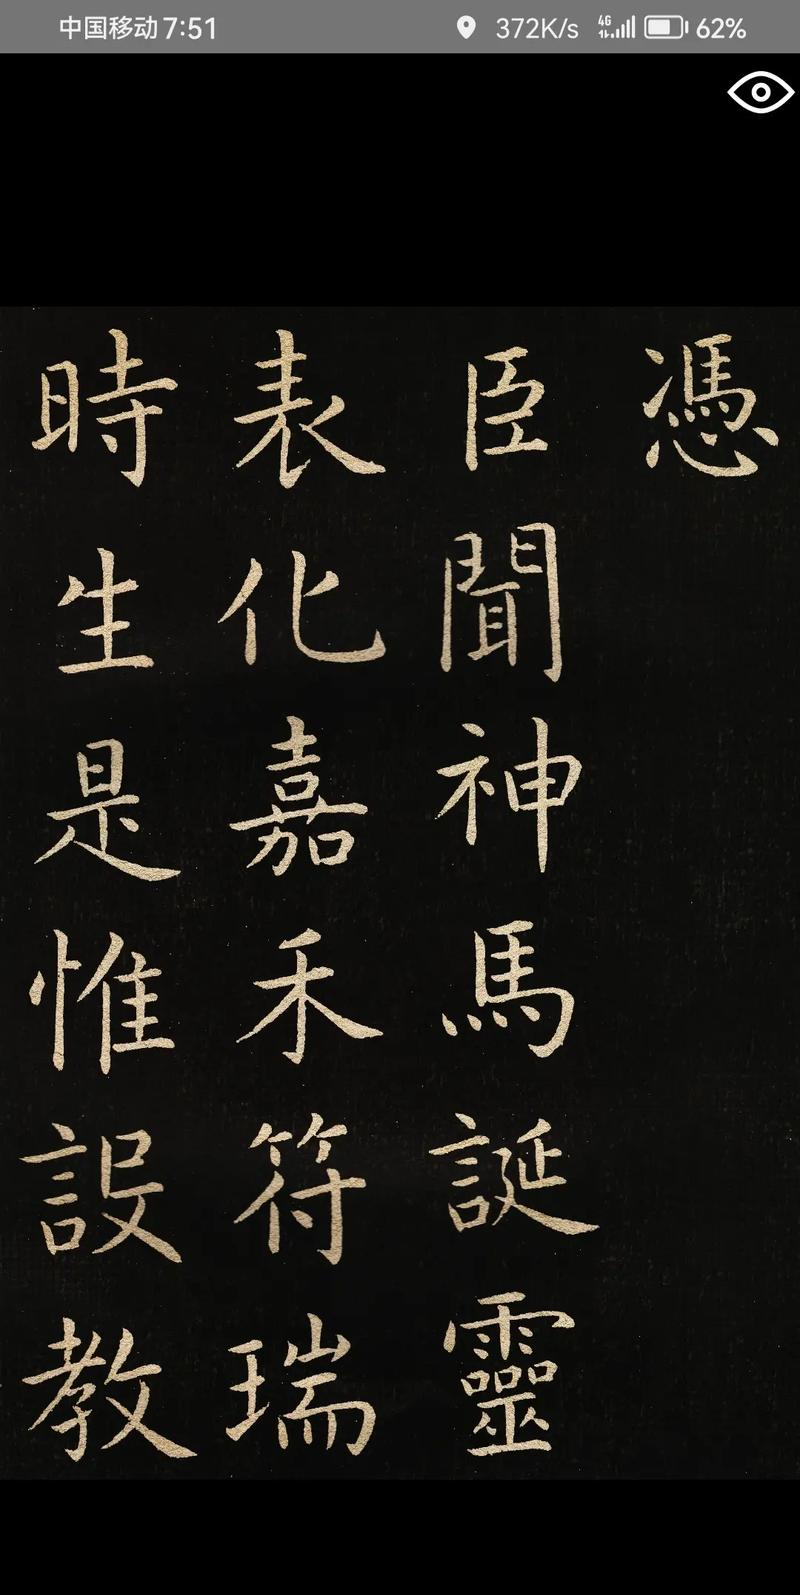 中国移动 7:51 372K/s 4G 62%
憑
臣聞神馬誕靈
表化嘉禾符瑞
時生是惟設教